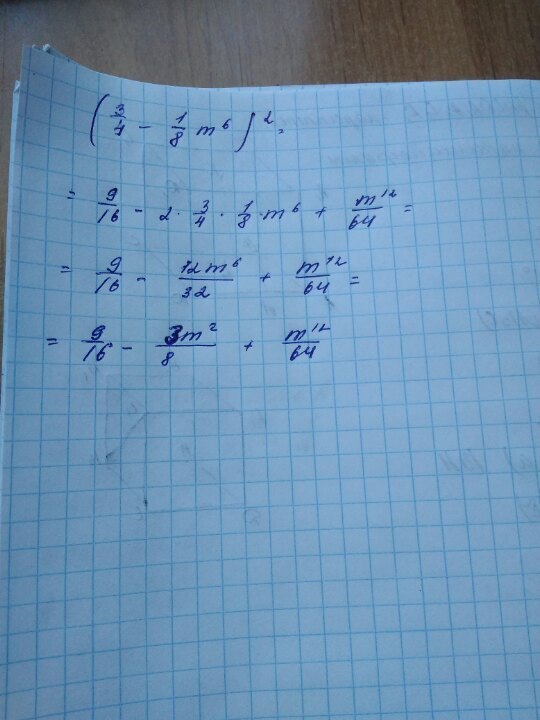 (3/4 - 1/8 m^6)^2 =
= 9/16 - 2 · 3/4 · 1/8 · m^6 + m^12/64 =
= 9/16 - 12m^6/32 + m^12/64 =
= 9/16 - 3m^2/8 + m^12/64